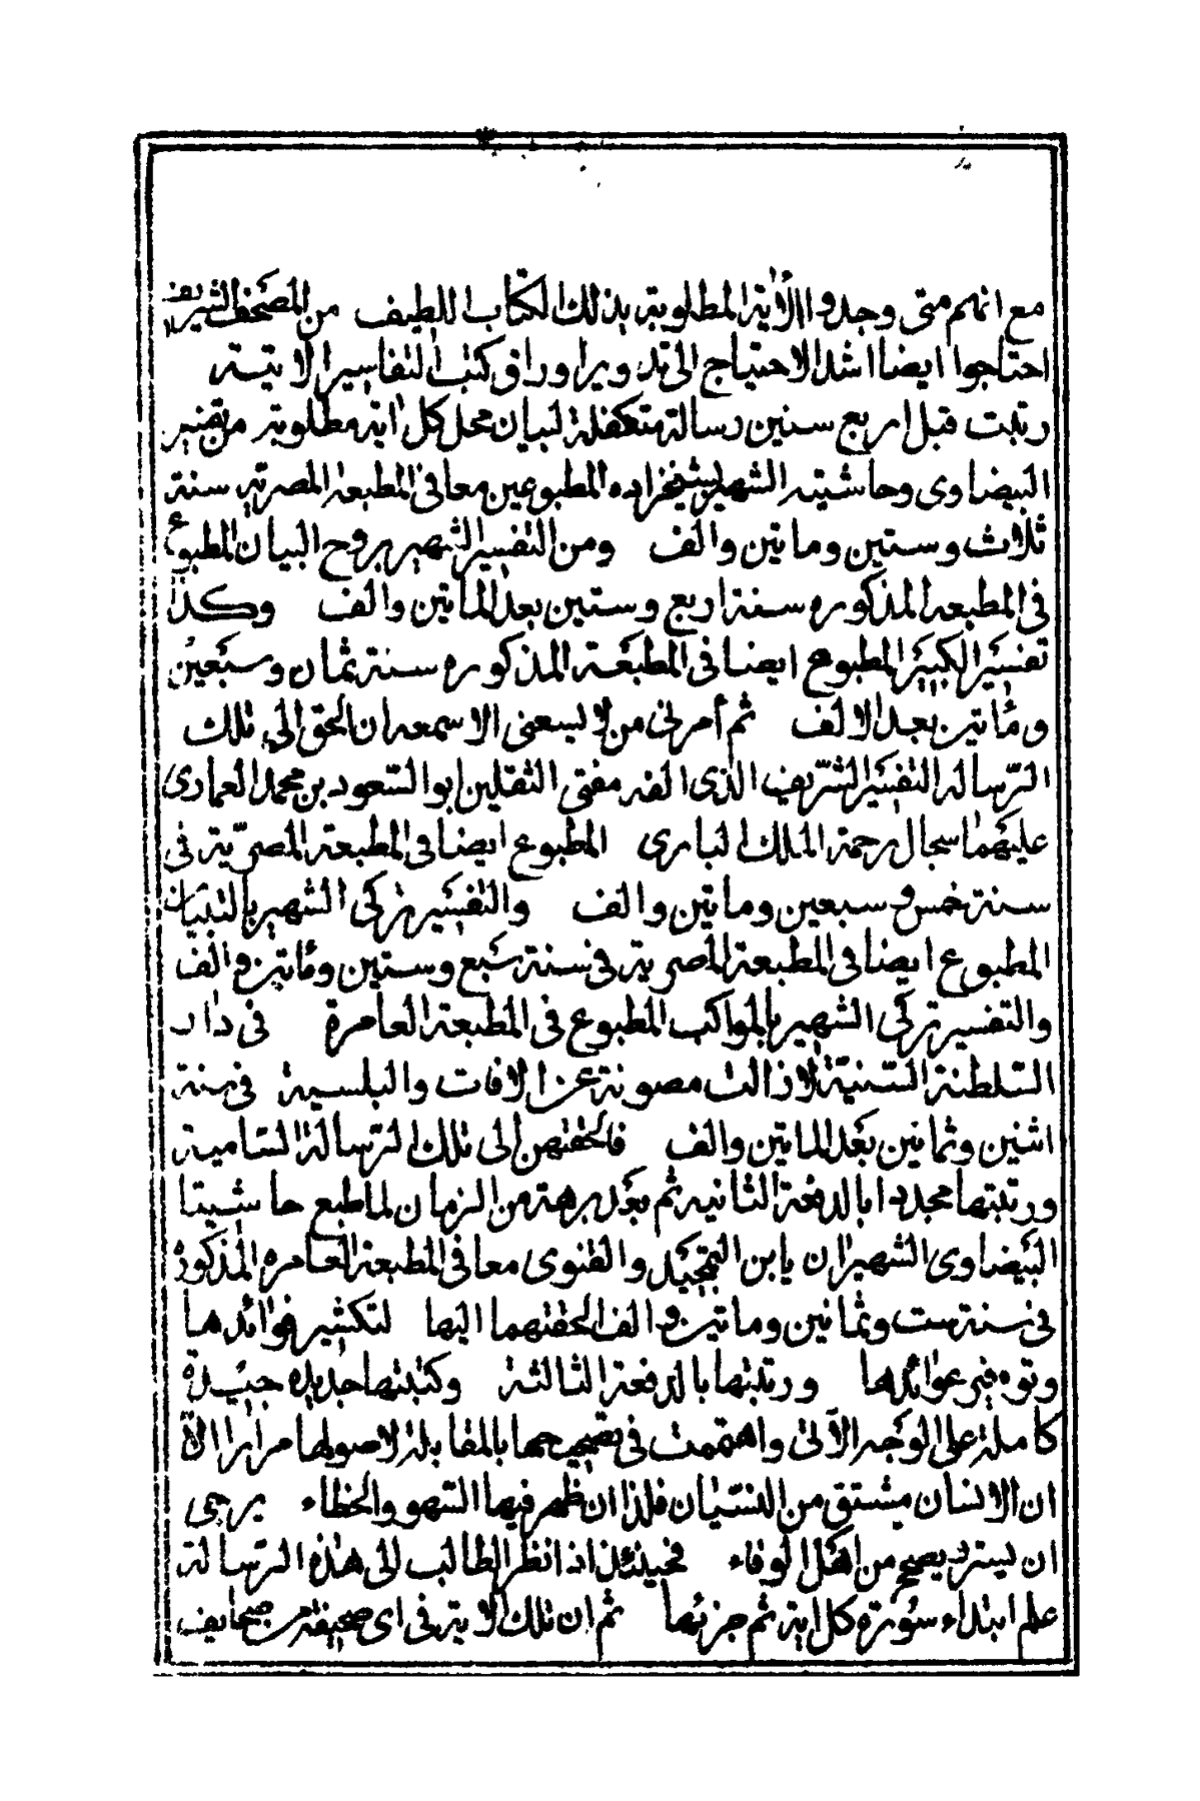 مع انهم متى وجدوا الآية المطلوبة بذلك الكتاب اللطيف من المصحف الشريف
احتاجوا ايضا اشد الاحتياج الى تدوير اوراق كتب التفاسير الاتية
رتبت قبل اربع سنين رسالة متكفلة لبيان محل كل اية مطلوبة من تفسير
البيضاوى وحاشيته الشهير بشيخزاده المطبوعين معا فى المطبعة المصرية سنة
ثلاث وستين وماتين والف ومن التفسير الشهير بروح البيان المطبوع
فى المطبعة المذكوره سنة اربع وستين بعد الماتين والف وكذا
تفسير الكبير المطبوع ايضا فى المطبعة المذكوره سنة ثمان وسبعين
ومأتين بعد الالف ثم أمرنى من لا يسعنى الا سمعه ان الحق الى تلك
الرسالة التفسير الشريف الذى الفه مفتى الثقلين ابو السعود بن محمد العمادى
عليهما سجال رحمة الملك البارى المطبوع ايضا فى المطبعة المصرية فى
سنة خمس وسبعين وماتين والف والتفسير تركى الشهير بالتبيان
المطبوع ايضا فى المطبعة المصرية فى سنة سبع وستين ومأتين والف
والتفسير تركى الشهير بالمواكب المطبوع فى المطبعة العامرة فى دار
السلطنة السنية لازالت مصونة عن الافات والبلسية فى سنة
اثنين وثمانين بعد الماتين والف فالحقتهن الى تلك الرسالة السامية
ورتبتها مجددا بالدفعة الثانيه ثم بعد برهة من الزمان لما طبع حاشيتا
البيضاوى الشهيران يابن التمجيد والقنوى معا فى المطبعة العامره المذكوره
فى سنة ست وثمانين وماتين والف الحقتهما اليها لتكثير فوائدها
وتوفير عوائدها ورتبتها بالدفعة الثالثة وكتبتها جديده جيدة
كاملة على الوجه الآتى واهتممت فى تصحيحها بالمقابلة لاصولها مرارا الا
ان الانسان مشتق من النسيان فلذا ان ظهر فيها السهو والخطاء يرجى
ان يستر ويصحح من اهل الوفاء فحينئذ اذا نظر الطالب الى هذه الرسالة
علم ابتداء سورة كل اية ثم جزئها ثم ان تلك الاية فى اى صحيفة من صحايف